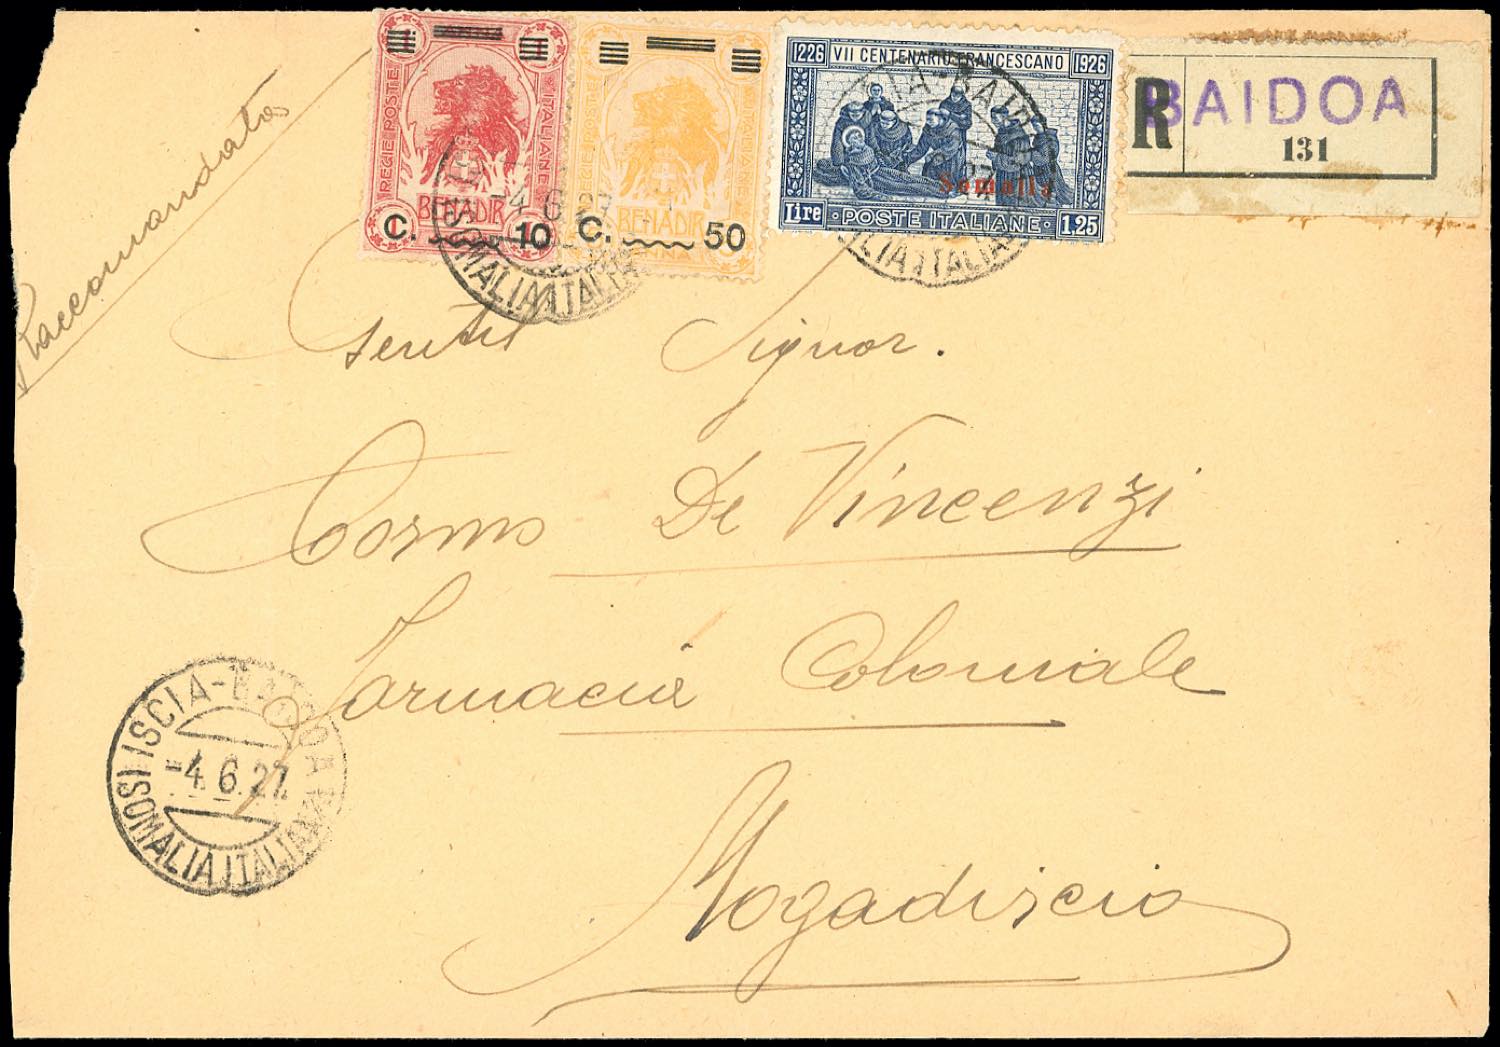 Raccomandata
REGIE POSTE ITALIANE
BENADIR
C. 10
REGIE POSTE ITALIANE
BENADIR
C. 50
1226 VII CENTENARIO FRANCESCANO 1926
Somalia
Lire POSTE ITALIANE 1.25
R BAIDOA
131
-4.6.27
(SOMALIA ITALIANA)
Gentil Signor.
Cosmo De Vincenzi
Farmacia Coloniale
Mogadiscio
ISCIA-BAIDOA
-4.6.27
(SOMALIA ITALIANA)